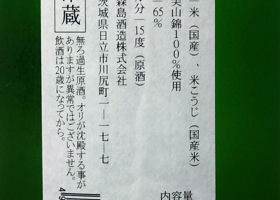 米(国産)、米こうじ(国産米)
美山錦100%使用
65%
分 15度(原酒)
森島酒造株式会社
茨城県日立市川尻町1-17-7
蔵
無ろ過生原酒、オリが沈殿する事が
ありますが異常ではございません。
飲酒は20歳になってから。
内容量
49